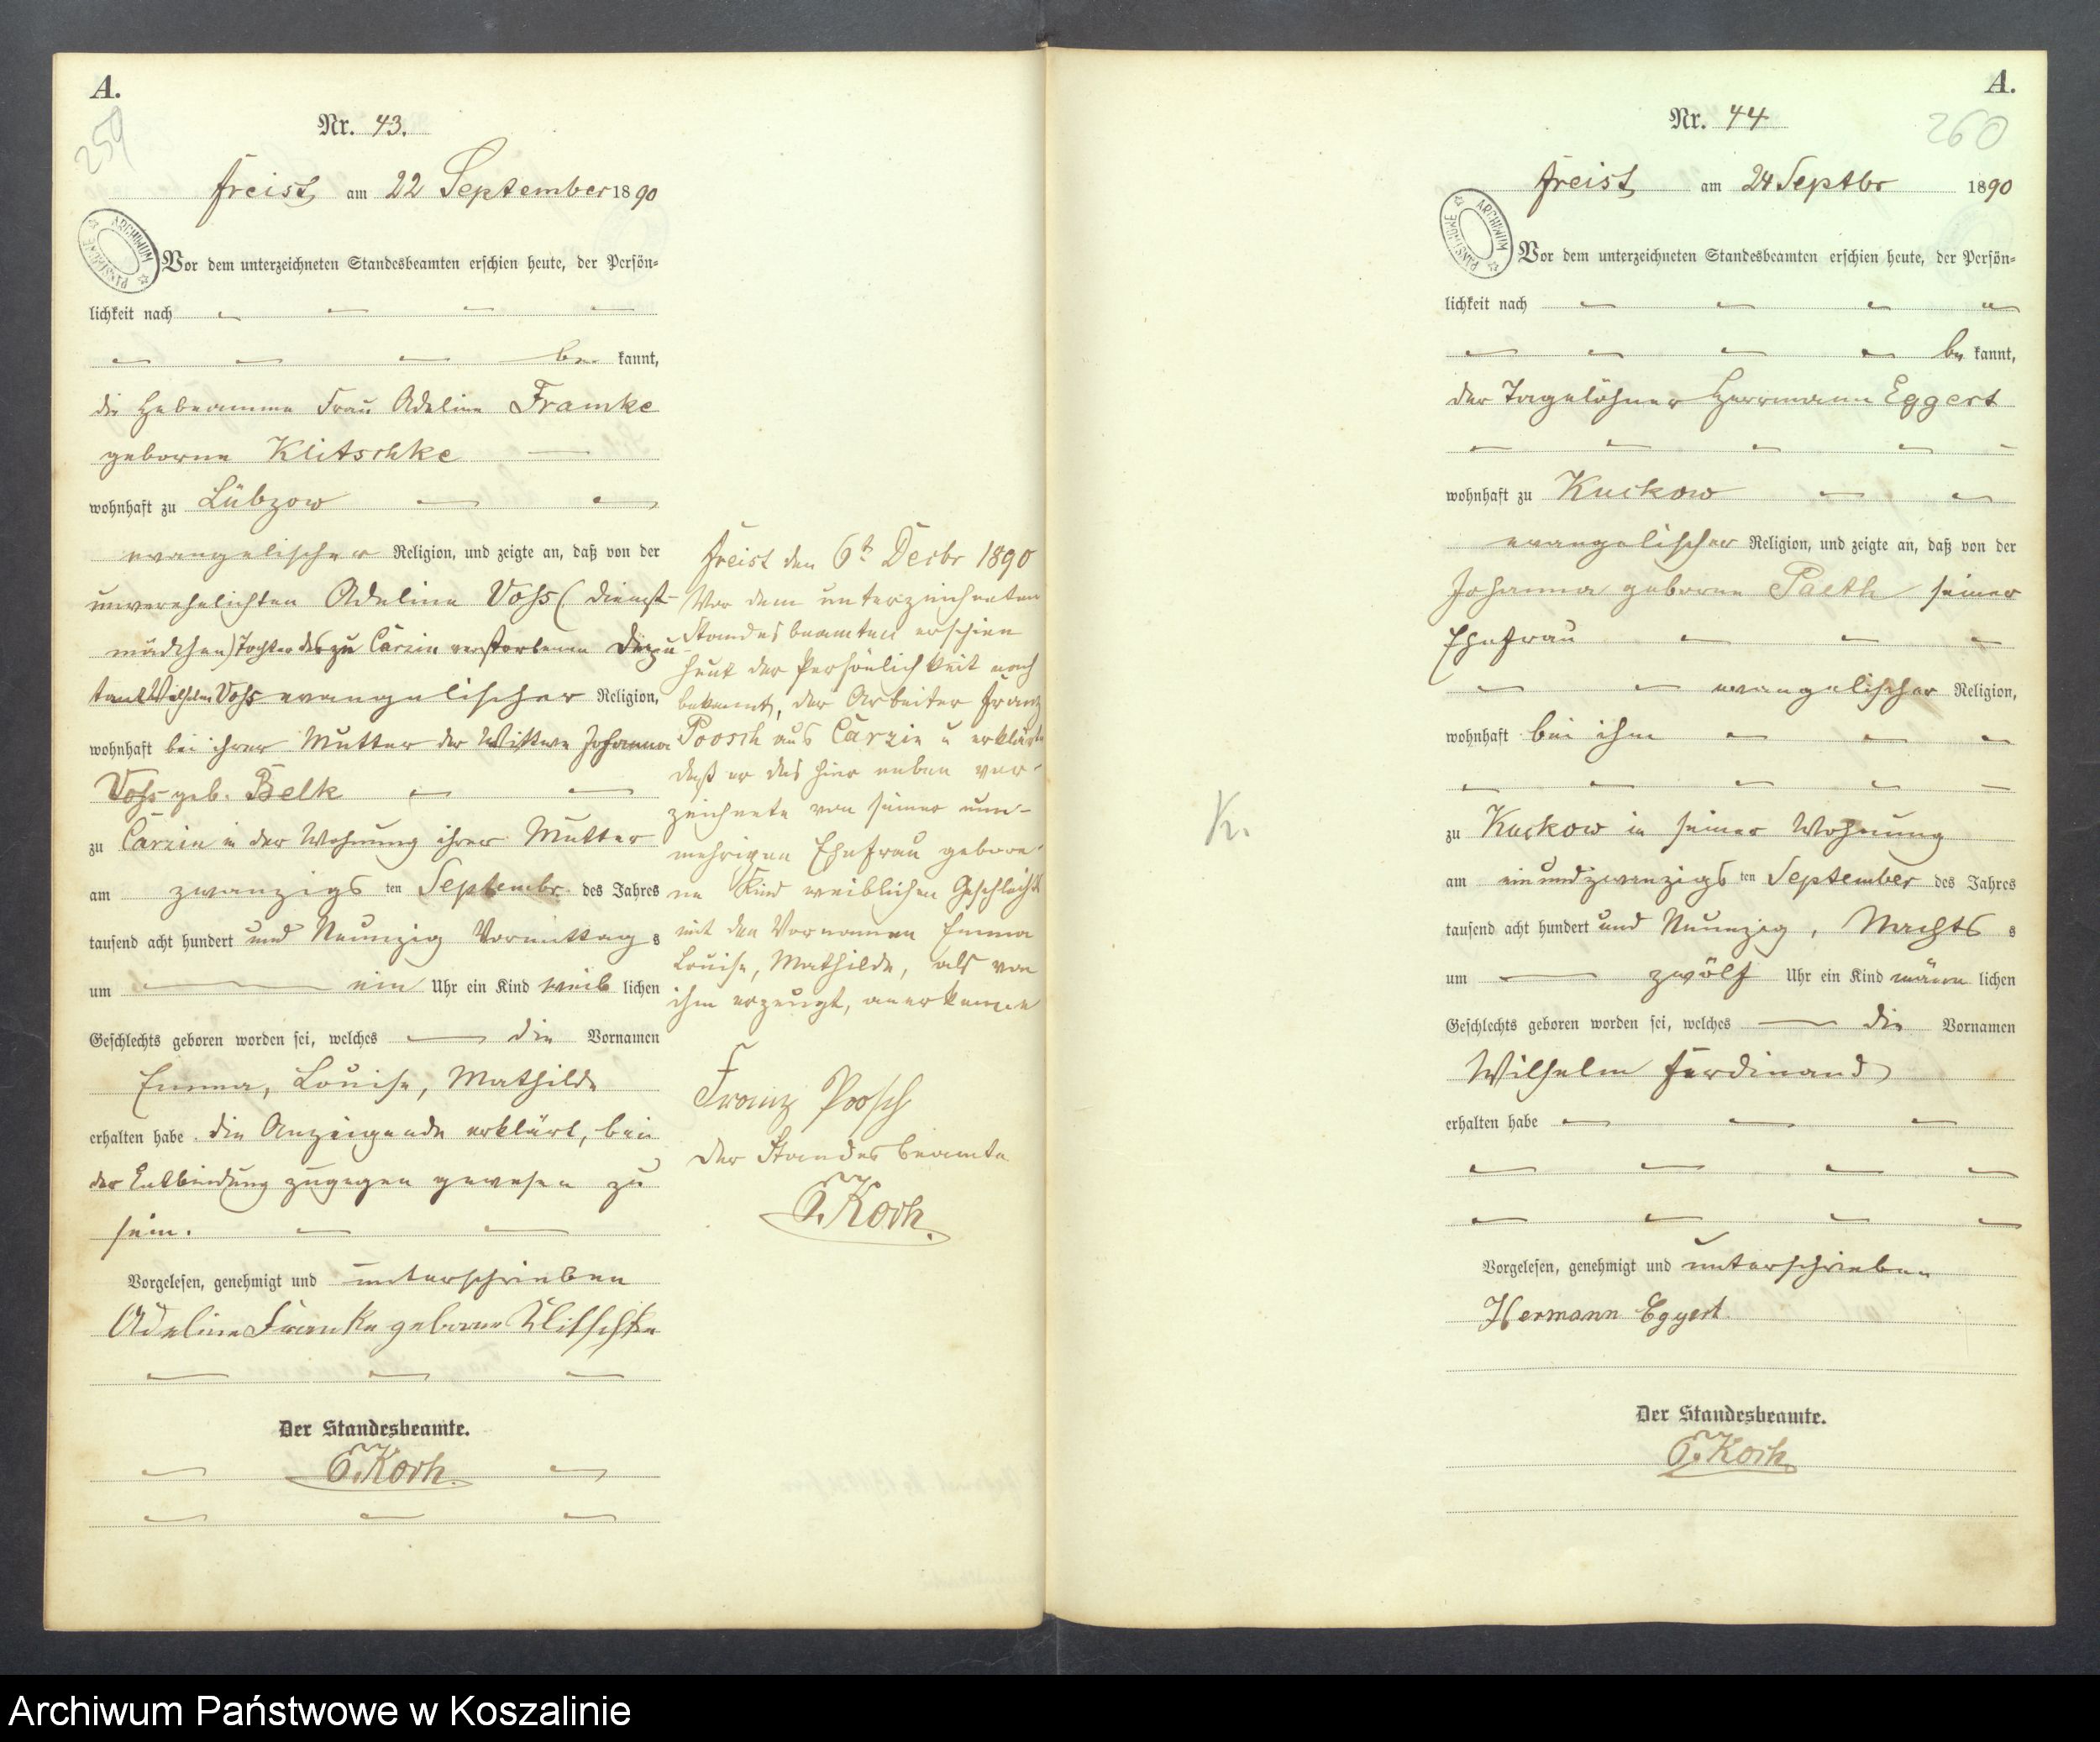 A.
259
Nr. 43.
Freist am 22 September 1890
ARCHIWUM PAŃSTWOWE
Vor dem unterzeichneten Standesbeamten erschien heute, der Persön=
lichkeit nach
be kannt,
die Hebeamme Frau Adeline Framke
geborne Klitschke
wohnhaft zu Lübzow
evangelischer Religion, und zeigte an, daß von der
unverehelichten Adeline Vohs (Dienst-
mädchen) Tochter des zu Carzin verstorbenen Depu-
tant Wilhelm Vohs evangelischer Religion,
wohnhaft bei ihrer Mutter der Wittwe Johanna
Vohs geb. Belk
zu Carzin in der Wohnung ihrer Mutter
am zwanzigs ten Septembr. des Jahres
tausend acht hundert und Neunzig Vormittag s
um ein Uhr ein Kind weib lichen
Geschlechts geboren worden sei, welches die Vornamen
Emma, Louise, Mathilde
erhalten habe. die Anzeigende erklärt, bei
der Entbindung zugegen gewesen zu
sein.
Vorgelesen, genehmigt und unterschrieben
Adeline Framke geborne Klitschke
Der Standesbeamte.
E. Koch.
Freist den 6t Decbr 1890
Vor dem unterzeichneten
Standesbeamten erschien
heut der Persönlichkeit nach
bekannt, der Arbeiter Franz
Poosch aus Carzin u erklärte
daß er das hier neben ver-
zeichnete von seiner nun-
mehrigen Ehefrau gebore-
ne Kind weiblichen Geschlechts
mit den Vornamen Emma
Louise, Mathilde, als von
ihm erzeugt, anerkenne
Franz Poosch
Der Standesbeamte
E. Koch.
A.
260
Nr. 44
Freist am 24 Septbr 1890
ARCHIWUM PAŃSTWOWE
Vor dem unterzeichneten Standesbeamten erschien heute, der Persön=
lichkeit nach
be kannt,
der Tagelöhner Herrmann Eggert
wohnhaft zu Kuckow
evangelischer Religion, und zeigte an, daß von der
Johanna geborne Paeth seiner
Ehefrau
evangelischer Religion,
wohnhaft bei ihm
zu Kuckow in seiner Wohnung
am einundzwanzigs ten September des Jahres
tausend acht hundert und Neunzig, Nachts s
um zwölf Uhr ein Kind männ lichen
Geschlechts geboren worden sei, welches die Vornamen
Wilhelm Ferdinand
erhalten habe
Vorgelesen, genehmigt und unterschrieben
Hermann Eggert
Der Standesbeamte.
E. Koch
K.
Archiwum Państwowe w Koszalinie